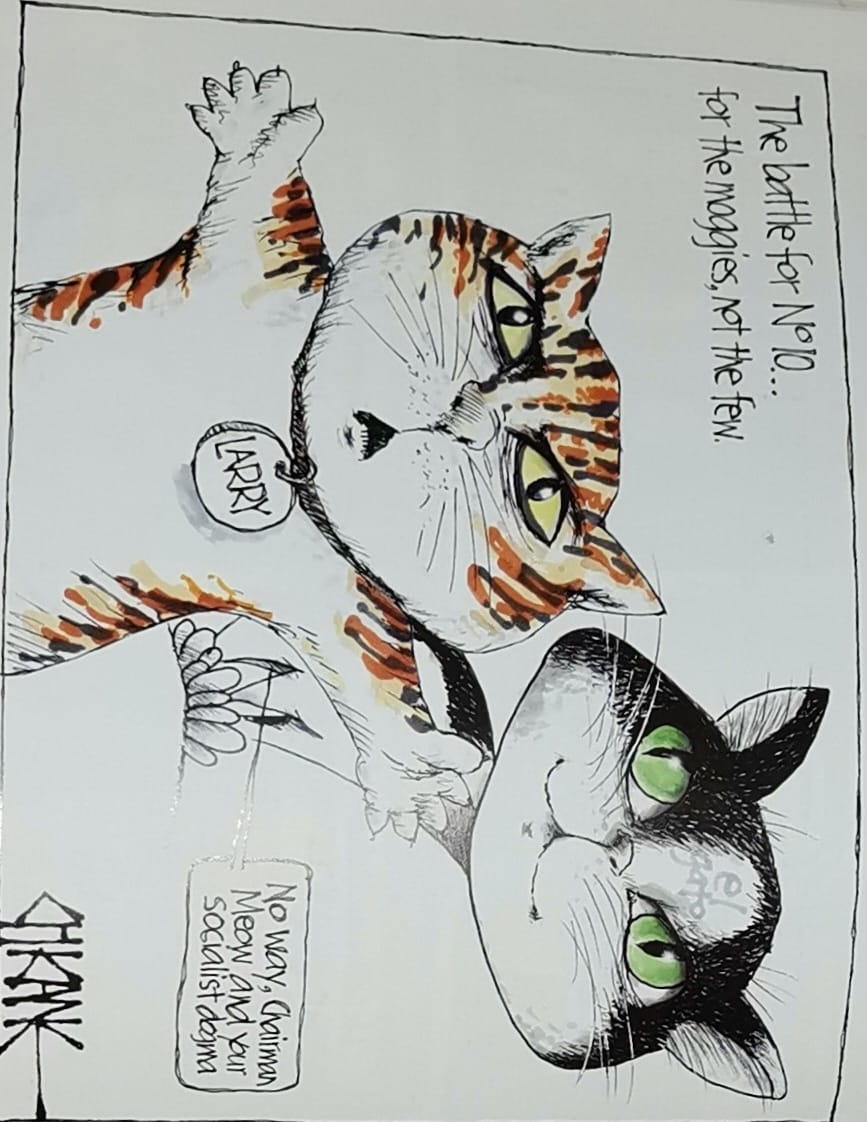 The battle for Nº10...
for the moggies, not the few.
LARRY
el
gato
No way, Chairman
Meow and your
socialist dogma